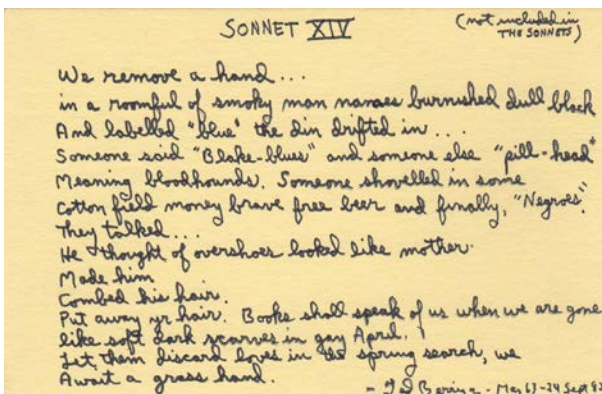 SONNET XIV
(not included in
THE SONNETS)
We remove a hand...
in a roomful of smoky man names burnished dull black
And labelled "blue" the din drifted in...
Someone said "Blake-blues" and someone else "pill-head"
Meaning bloodhounds. Someone shovelled in some
Cotton field money brave free beer and finally, "Negroes".
They talked...
He thought of overshoes looked like mother
Made him
Combed his hair.
Put away yr hair. Books shall speak of us when we are gone
like soft dark scarves in gay April.
Let them discard loves in the spring search, we
Await a grass hand.
- Ted Berrigan - May 63-24 Sept 82